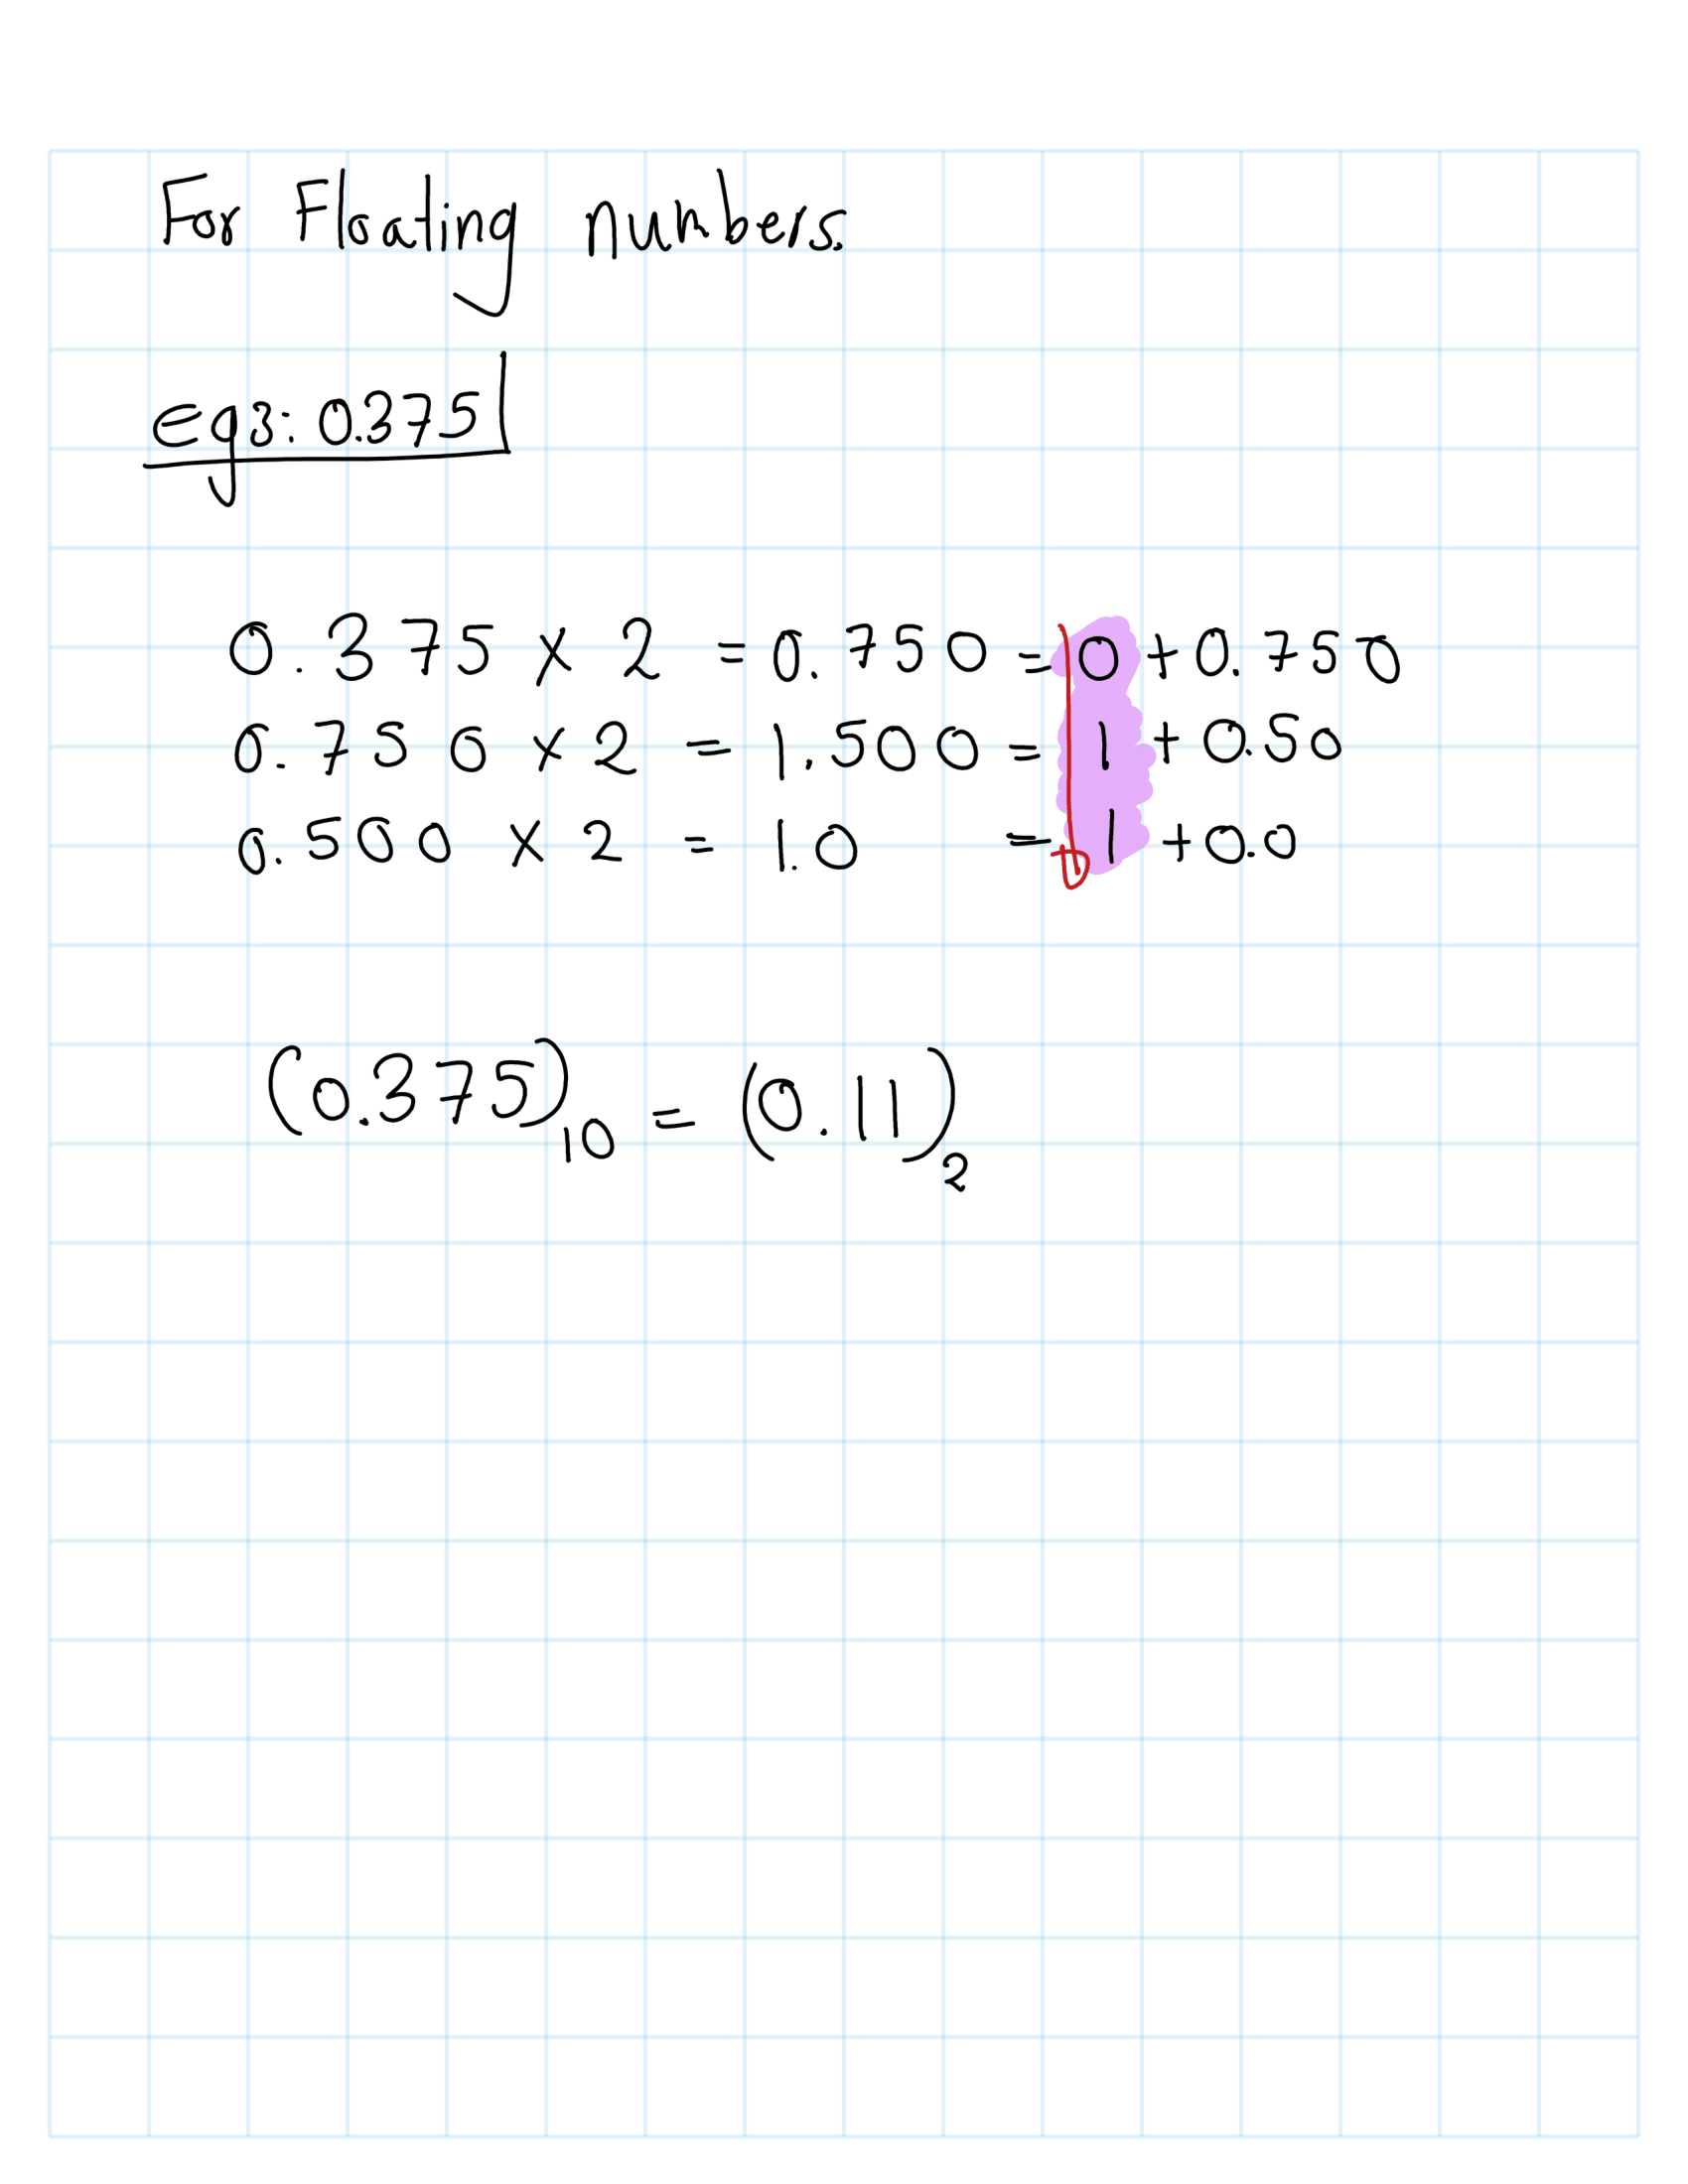 For Floating numbers.
eg3: 0.375
0.375 x 2 = 0.750 = 0 + 0.750
0.750 x 2 = 1.500 = 1 + 0.50
0.500 x 2 = 1.0 = 1 + 0.0
(0.375)₁₀ = (0.11)₂